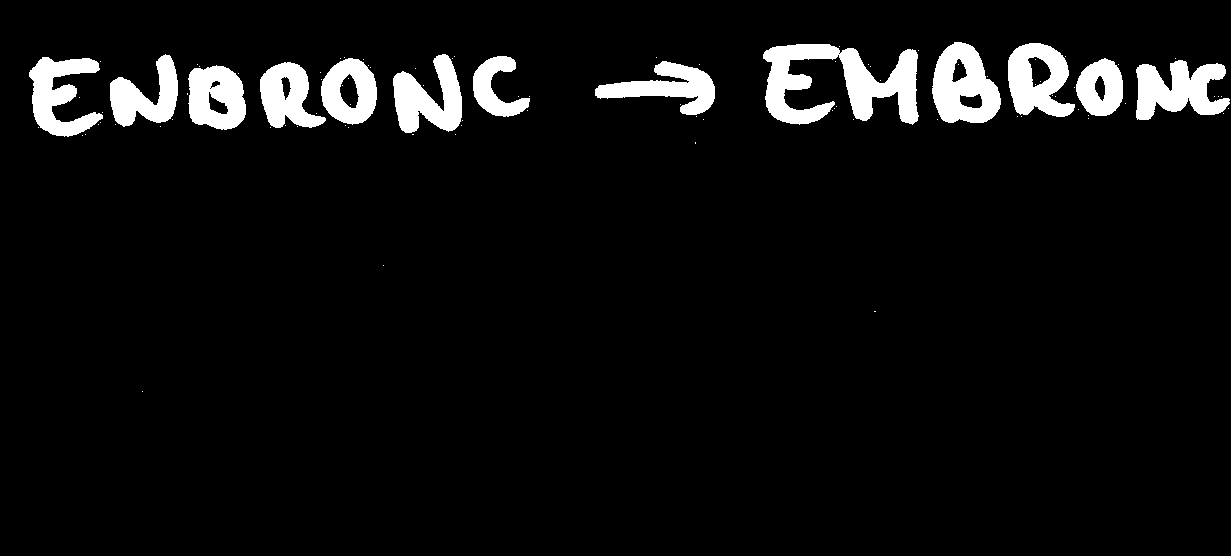 ENBRONC → EMBRONC